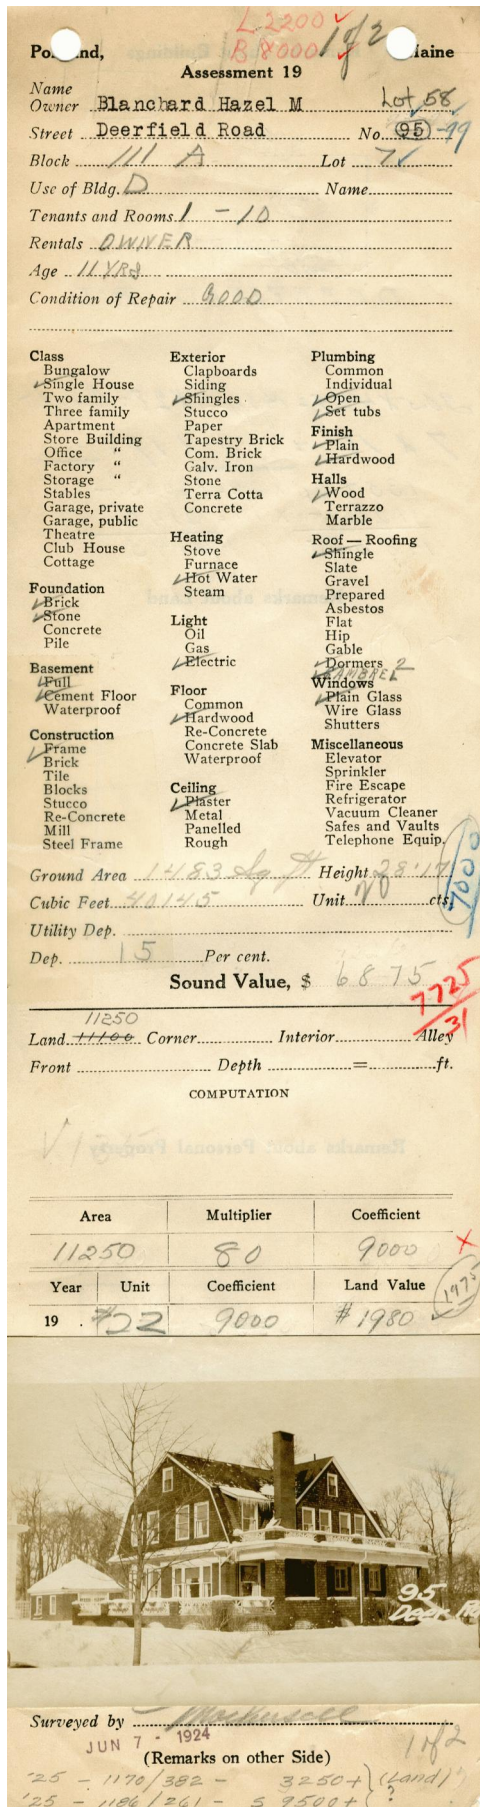 L 2200 ✓
B 8000 ✓ 1 of 2
Portland, Maine
Assessment 19
Name
Owner Blanchard Hazel M Lot 58
Street Deerfield Road No. 95-99
Block 111 A Lot 7 ✓
Use of Bldg. D Name
Tenants and Rooms 1 - 10
Rentals OWNER
Age 11 YRS
Condition of Repair GOOD
Class
Bungalow
✓ Single House
Two family
Three family
Apartment
Store Building
Office "
Factory "
Storage "
Stables
Garage, private
Garage, public
Theatre
Club House
Cottage
Foundation
✓ Brick
✓ Stone
Concrete
Pile
Basement
✓ Full
✓ Cement Floor
Waterproof
Construction
✓ Frame
Brick
Tile
Blocks
Stucco
Re-Concrete
Mill
Steel Frame
Exterior
Clapboards
Siding
✓ Shingles
Stucco
Paper
Tapestry Brick
Com. Brick
Galv. Iron
Stone
Terra Cotta
Concrete
Heating
Stove
Furnace
✓ Hot Water
Steam
Light
Oil
Gas
✓ Electric
Floor
Common
✓ Hardwood
Re-Concrete
Concrete Slab
Waterproof
Ceiling
✓ Plaster
Metal
Panelled
Rough
Plumbing
Common
Individual
✓ Open
✓ Set tubs
Finish
✓ Plain
✓ Hardwood
Halls
✓ Wood
Terrazzo
Marble
Roof — Roofing
✓ Shingle
Slate
Gravel
Prepared
Asbestos
Flat
Hip
Gable
✓ Dormers 2
✓ GAMBREL
Windows
✓ Plain Glass
Wire Glass
Shutters
Miscellaneous
Elevator
Sprinkler
Fire Escape
Refrigerator
Vacuum Cleaner
Safes and Vaults
Telephone Equip.
Ground Area 1483 Sq ft Height 28-17
Cubic Feet 40145 Unit 20 cts.
7000
Utility Dep.
Dep. 15 Per cent.
Sound Value, $ 6875
7725
31
11250
Land 11100 Corner Interior Alley
Front Depth = ft.
COMPUTATION
Area Multiplier Coefficient
11250 80 9000 X
Year Unit Coefficient Land Value
1975
19 . $22 9000 $1980 ✓
95
Deer. Rd
Surveyed by
JUN 7 - 1924
1 of 2
(Remarks on other Side)
'25 - 1170/382 - 3250+ (Land)
'25 - 1186/261 - $ 9500+ ?